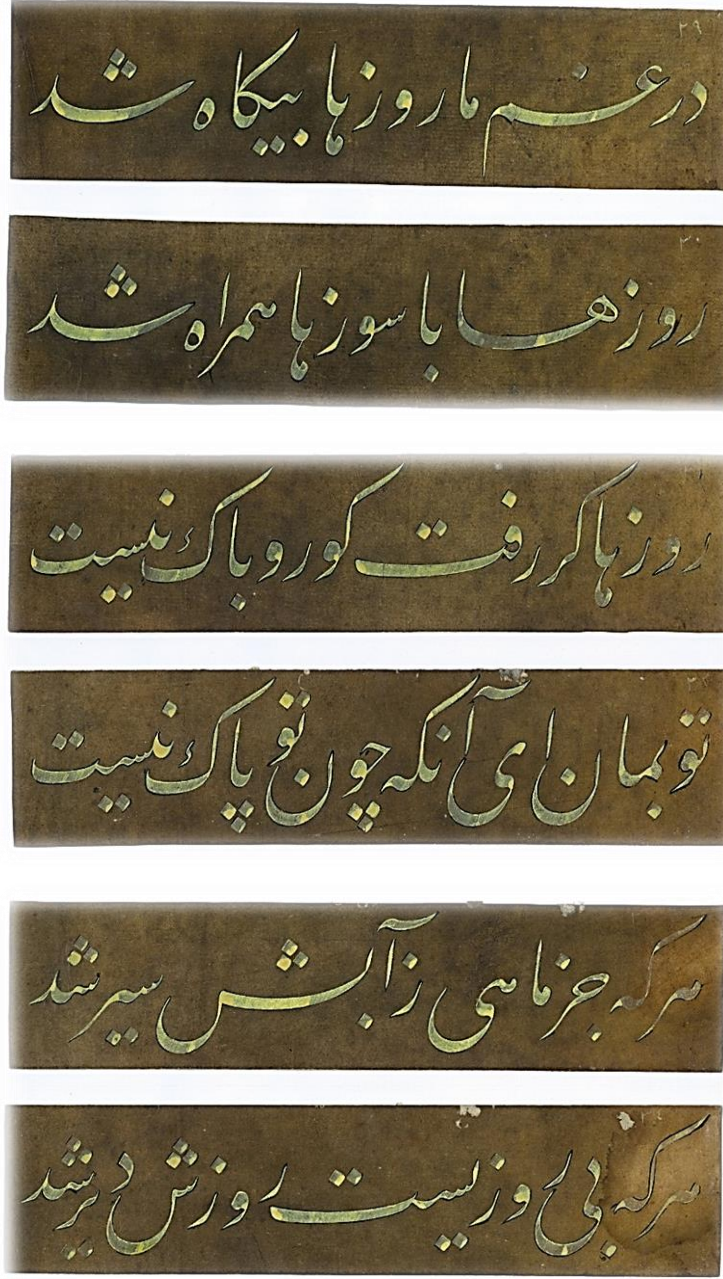 ۲۹
در غم ما روزها بیکاه شد
روزها با سوزها همراه شد
روزها کر رفت کو رو باک نیست
تو بمان ای آنکه چون تو پاک نیست
هرکه جز ماهی ز آبش سیر شد
هرکه بی روزیست روزش دیر شد